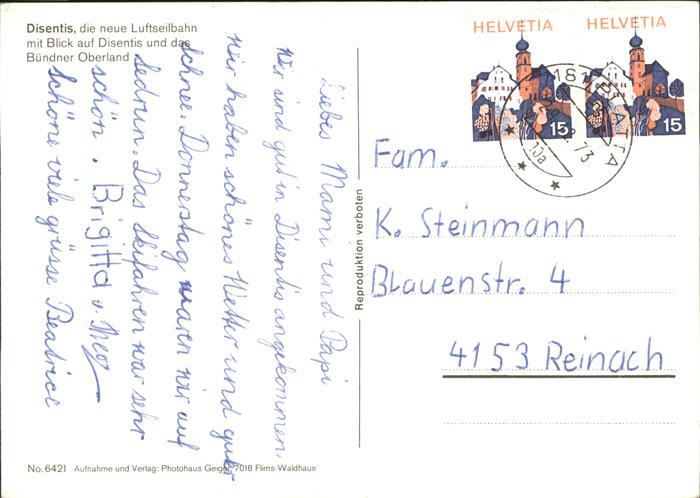 Disentis, die neue Luftseilbahn
mit Blick auf Disentis und das
Bündner Oberland
Liebes Mami und Papi
Wir sind gut in Disentis angekommen.
Wir haben schönes Wetter und guter
Schnee. Donnerstag waren wir auf
Sedrun. Das Skifahren war sehr
schön. Brigitta
Schöne viele grüsse Beatrice
Reproduktion verboten
HELVETIA
15
HELVETIA
15
73
Fam.
K. Steinmann
Blauenstr. 4
4153 Reinach
No. 6421 Aufnahme und Verlag: Photohaus Geiger, 7018 Flims-Waldhaus